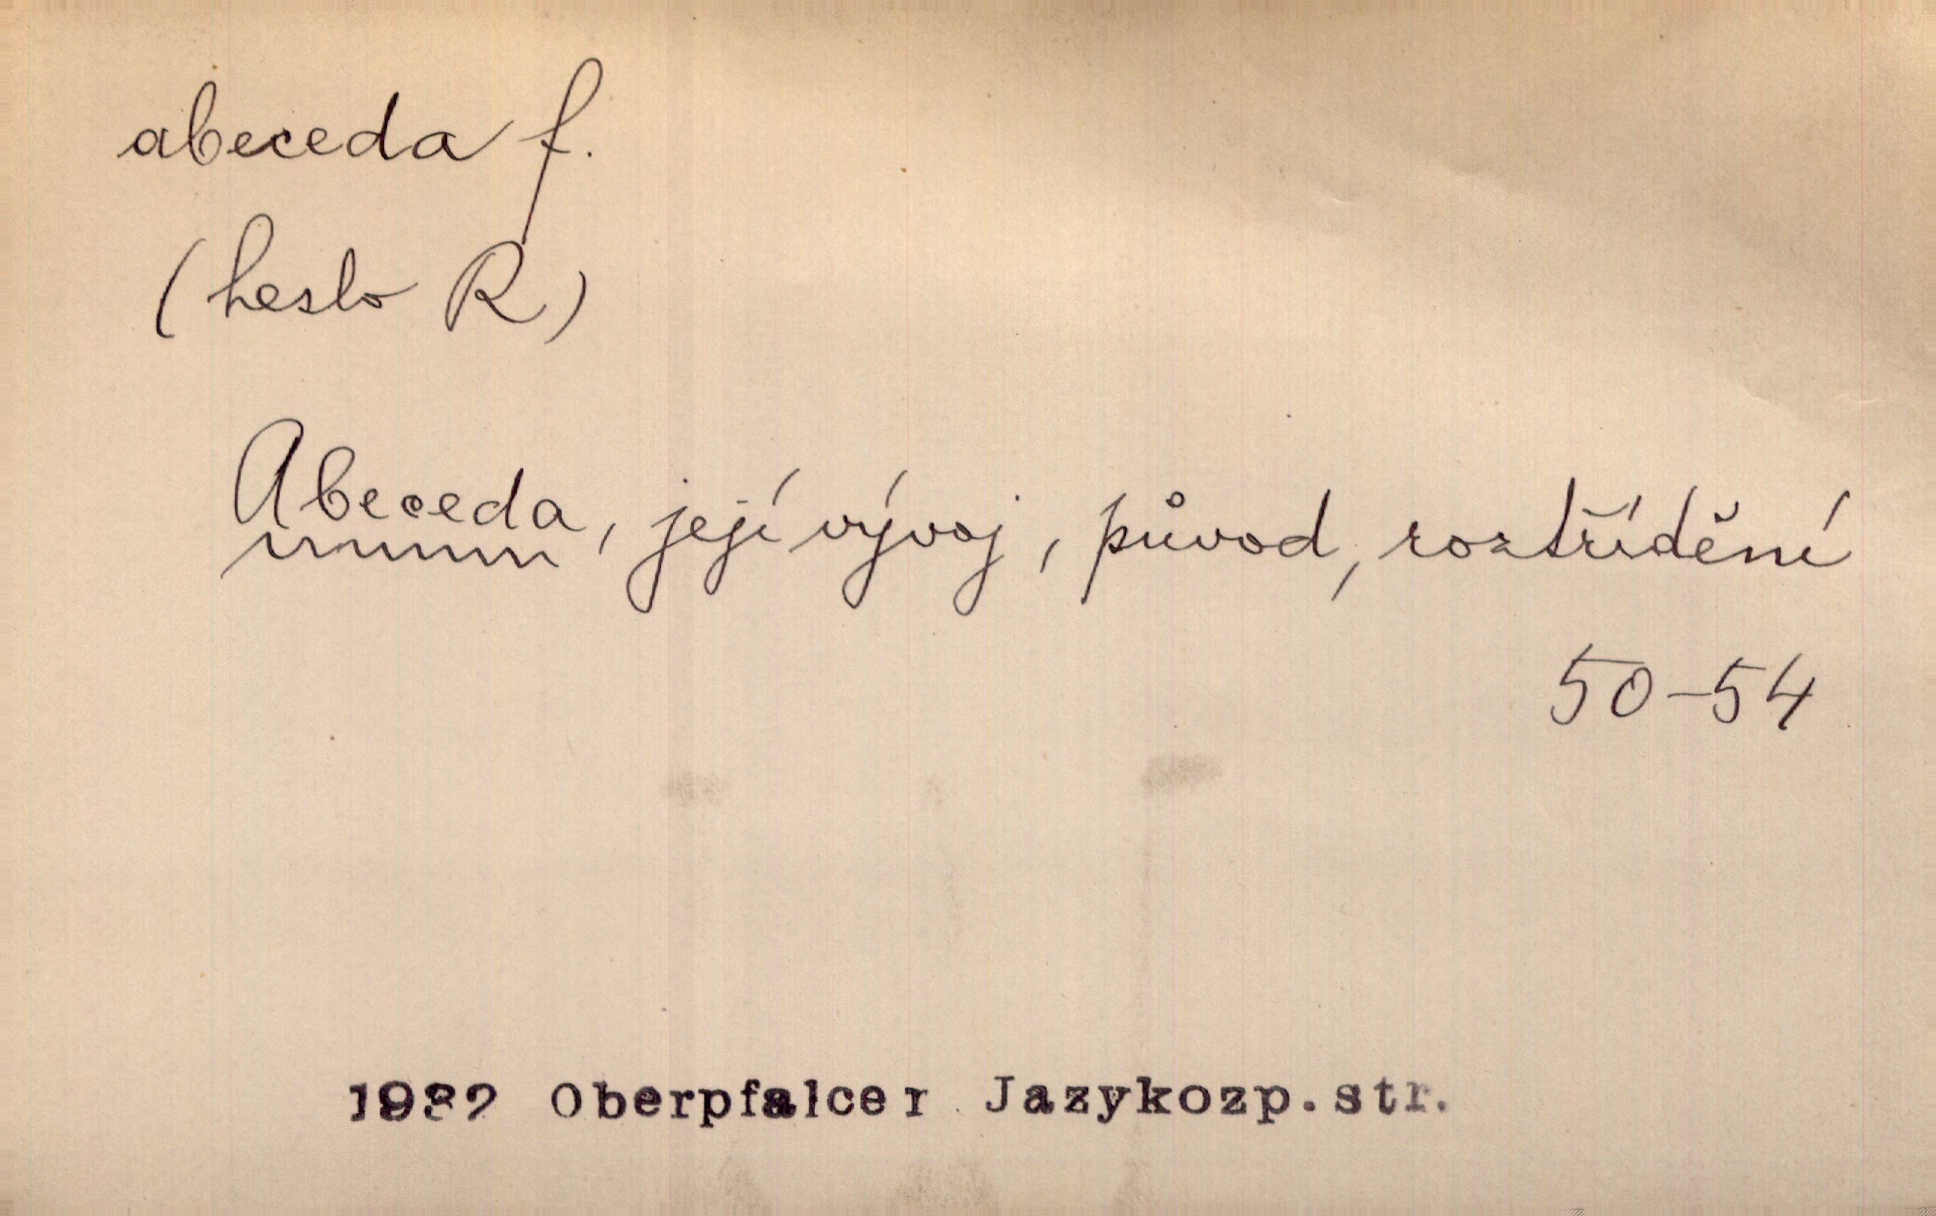 abeceda f.
(heslo R)
Abeceda, její vývoj, původ, roztřídění
50-54
1932 Oberpfalcer Jazykozp. str.